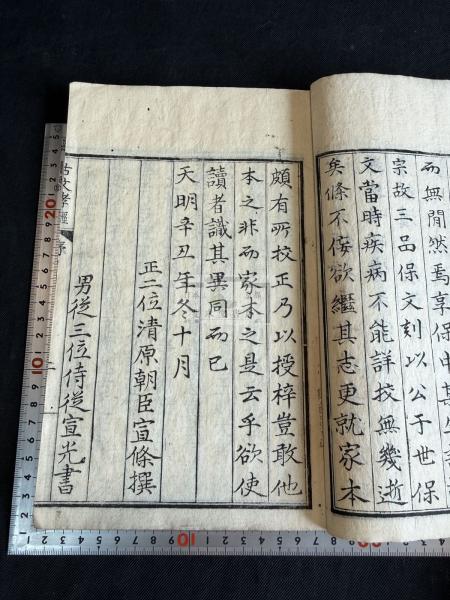 而無間然焉享保中其
宗故三品保文刻以公于世保
文當時疾病不能詳挍無幾逝
矣條不侫欲繼其志更就家本
頗有所挍正乃以授梓豈敢他
本之非而家本之是云乎欲使
讀者識其異同而已
天明辛丑年冬十月
正二位清原朝臣宣條撰
男從三位侍從宣光書
古文孝經
序